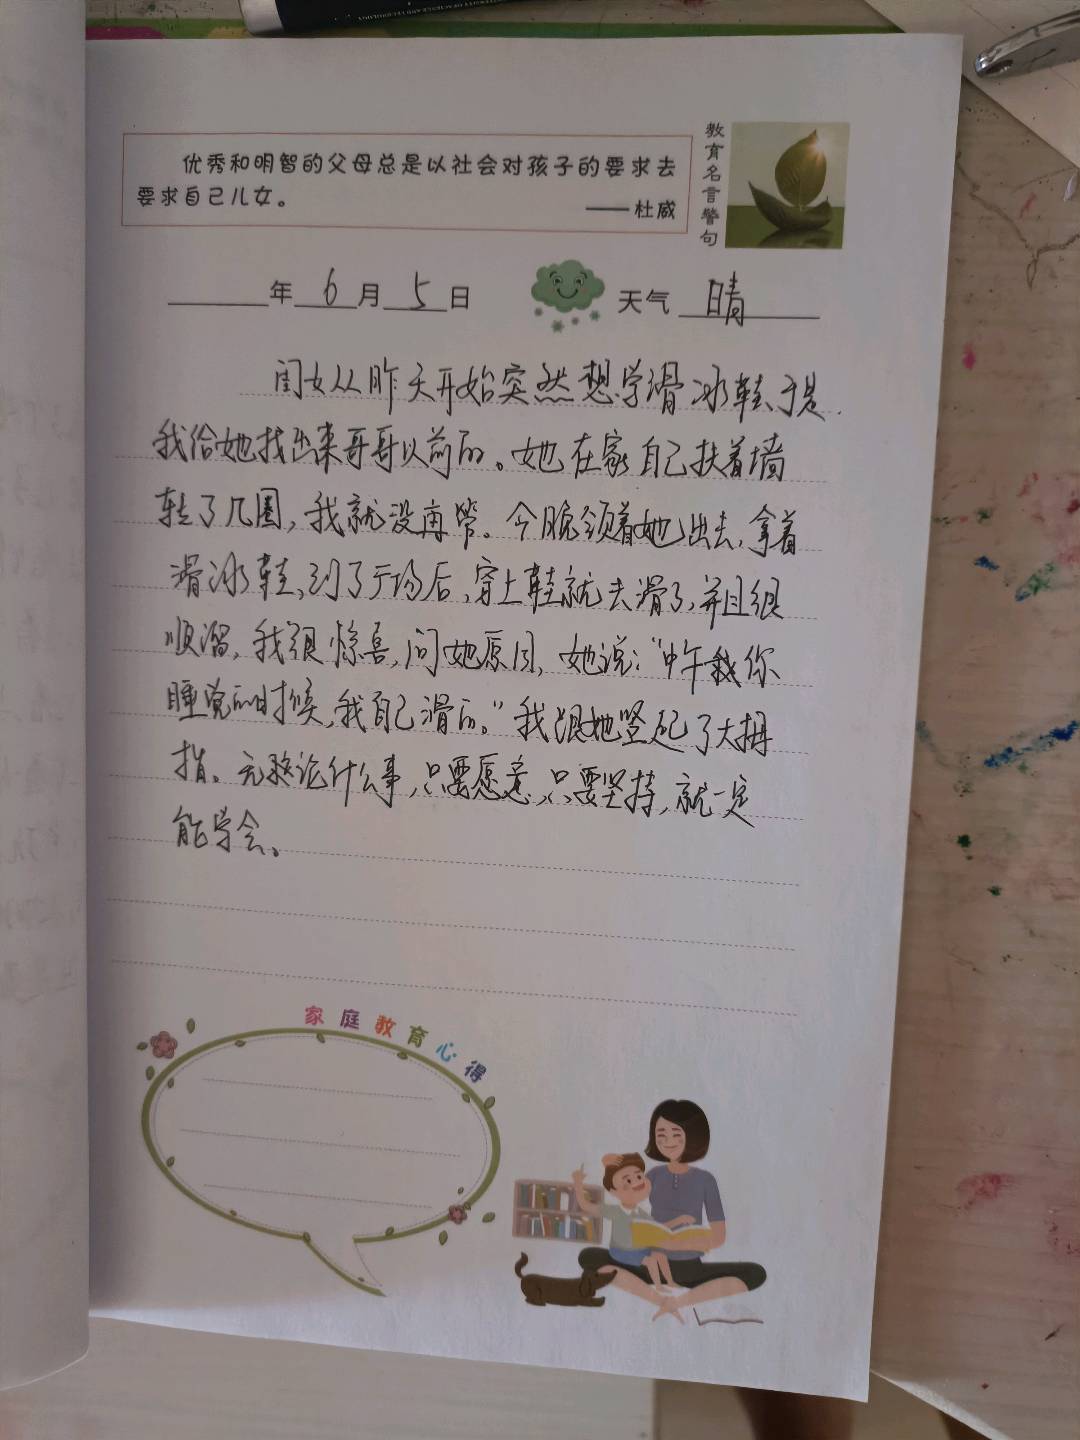 优秀和明智的父母总是以社会对孩子的要求去
要求自己儿女。
——杜威
教育名言警句
年 6 月 5 日 天气 晴
闺女从昨天开始突然想学滑冰鞋,于是
我给她找出来哥哥以前的。她在家自己扶着墙
转了几圈,我就没再管。今晚领着她出去,拿着
滑冰鞋,到了广场后,穿上鞋就去滑了,并且很
顺溜,我很惊喜,问她原因,她说:“中午我你
睡觉的时候,我自己滑的。”我跟她竖起了大拇
指。无论什么事,只要愿意,只要坚持,就一定
能学会。
家庭教育心得